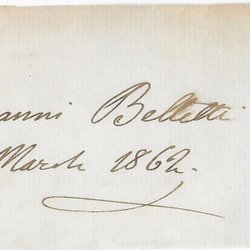 anni Belletti
March 1862.